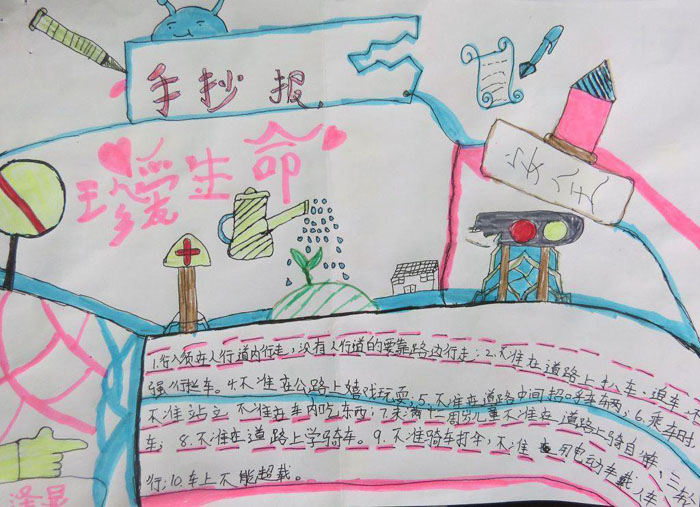 手抄报
珍爱生命
安全
1.行人须在人行道内行走,没有人行道的要靠路边行走;2.不准在道路上扒车;追车,不
强行拦车。4.不准在公路上嬉戏玩耍;5.不准在道路中间招呼车辆;6.乘车时
不准站立 不准在车内吃东西;7.未满十二周岁儿童不准在道路上骑自 三轮
车;8.不准在道路上学骑车。9.不准骑车打伞;不准 电动车载人车
行;10.车上不能超载。
泽显